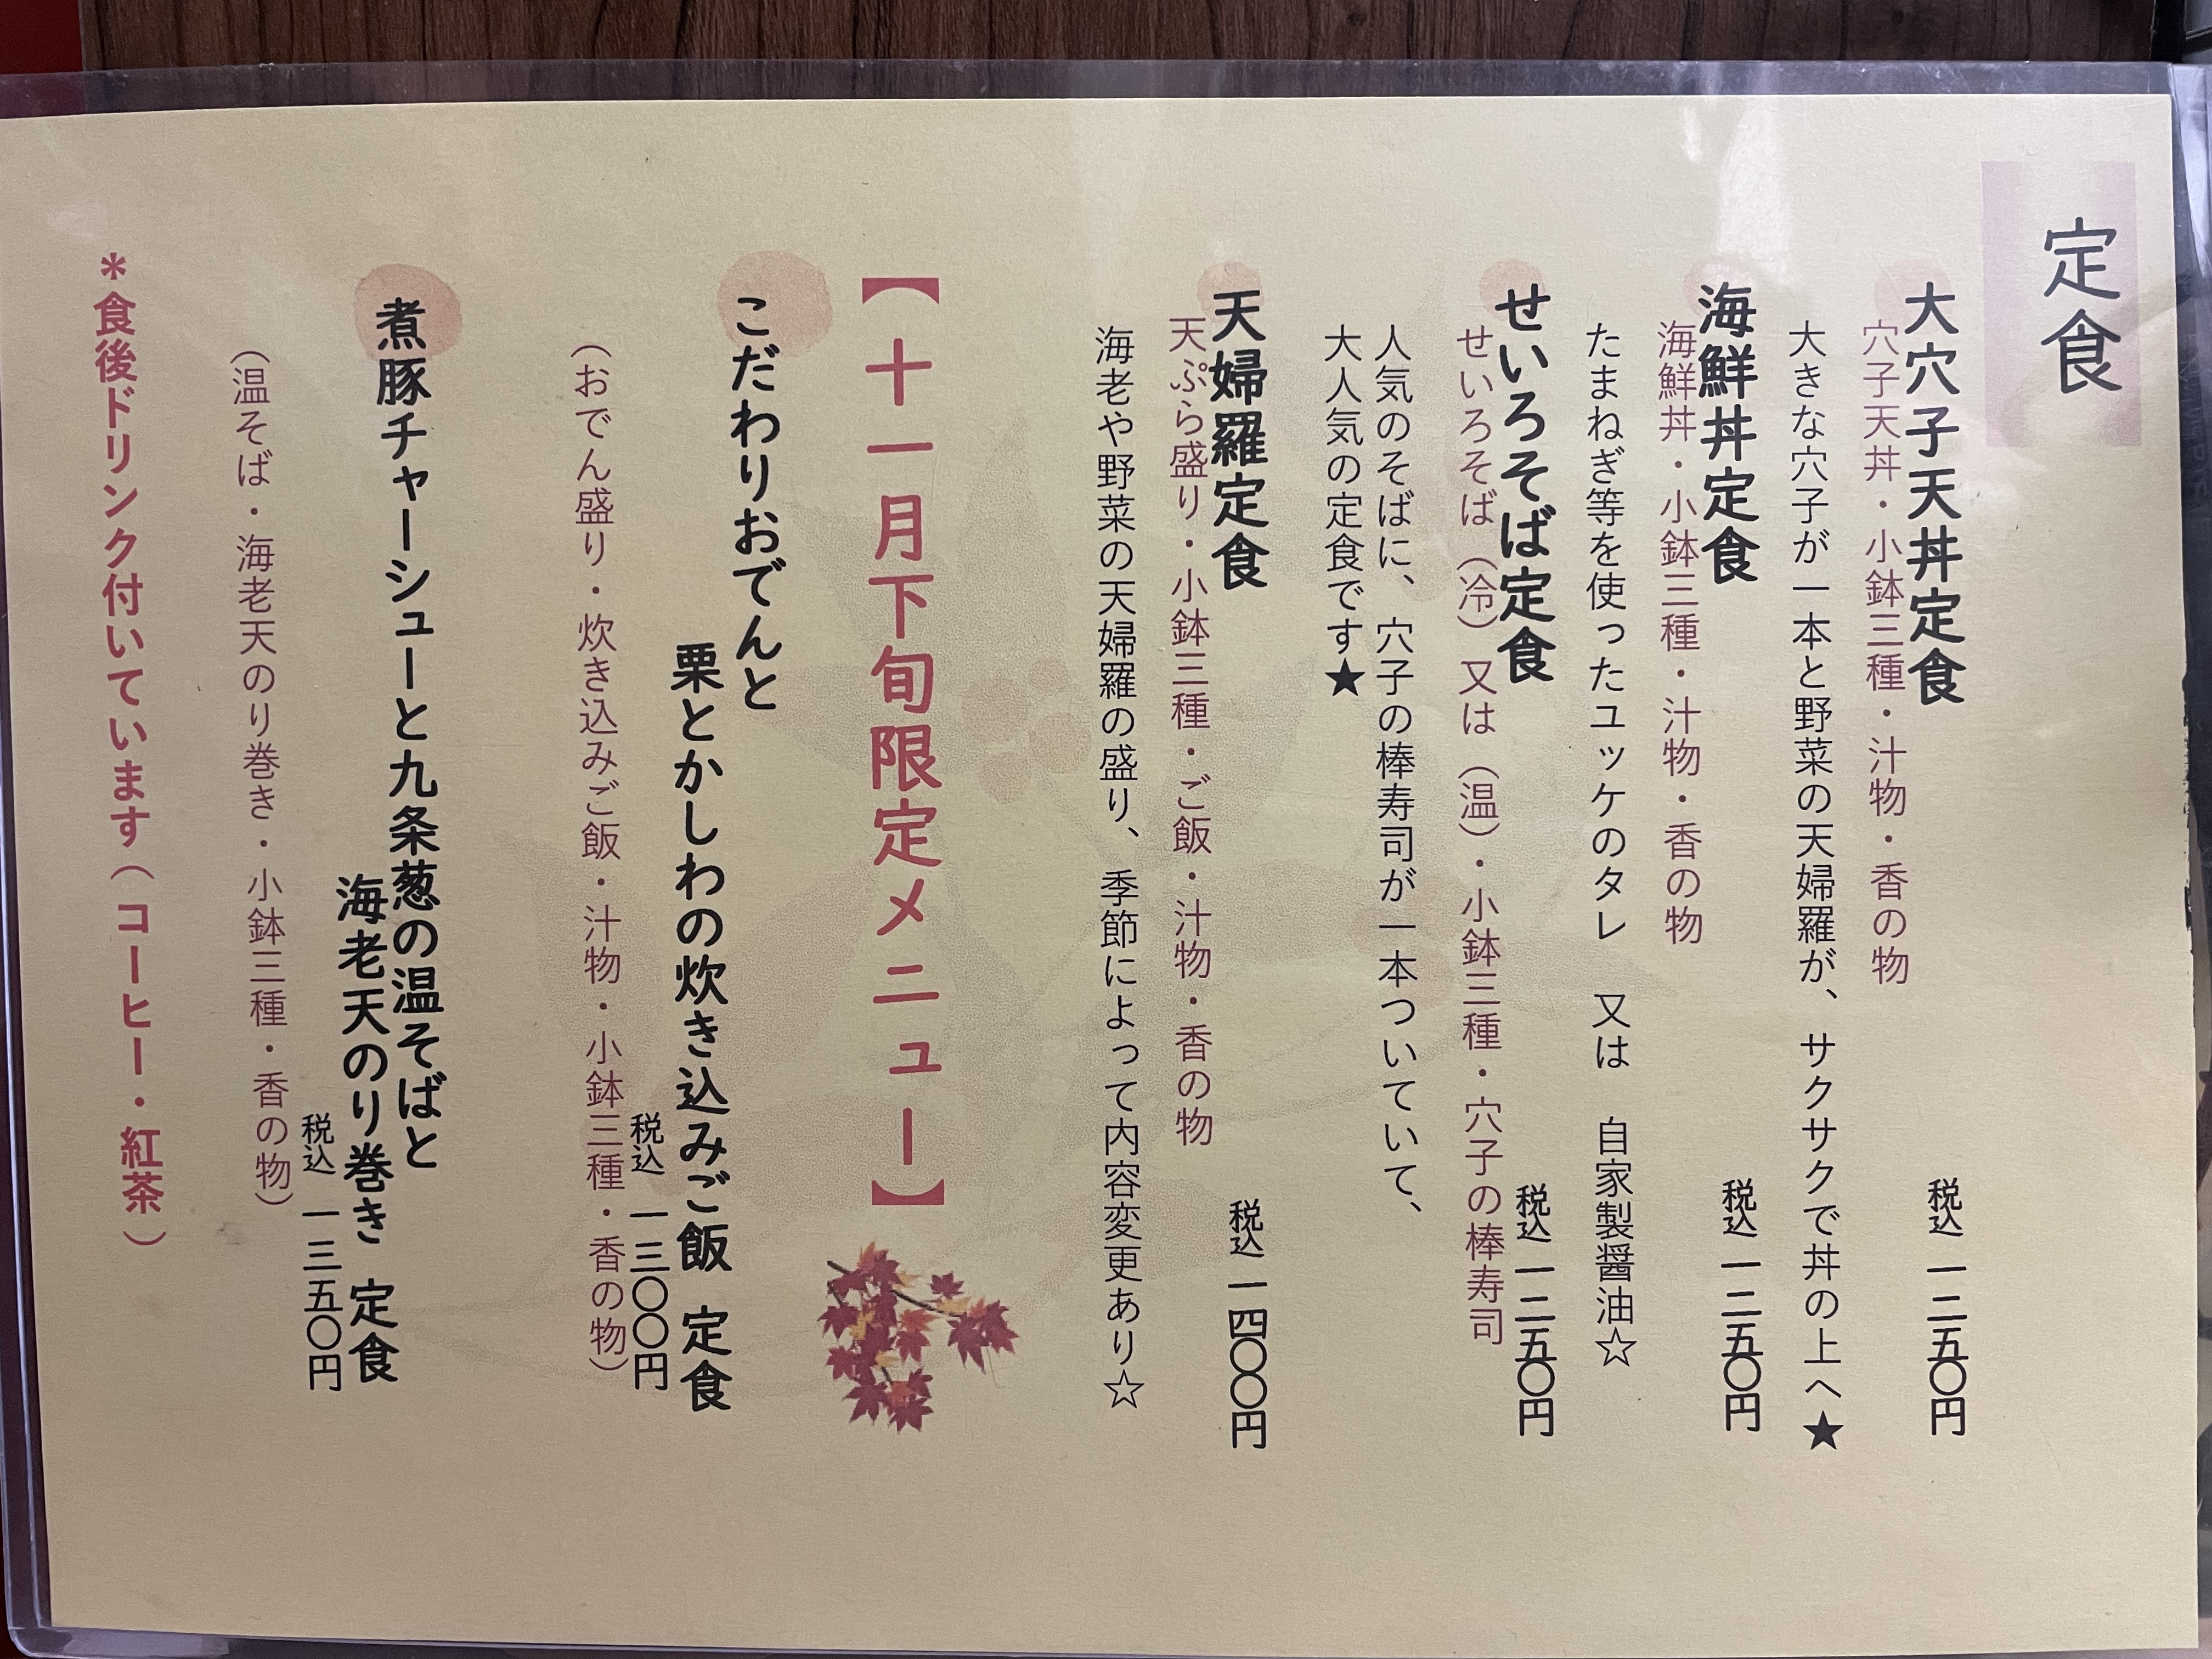 定食
大穴子天丼定食
税込 一二五〇円
穴子天丼・小鉢三種・汁物・香の物
大きな穴子が一本と野菜の天婦羅が、サクサクで丼の上へ★
海鮮丼定食
税込 一二五〇円
海鮮丼・小鉢三種・汁物・香の物
たまねぎ等を使ったユッケのタレ 又は 自家製醤油☆
せいろそば定食
税込 一二五〇円
せいろそば（冷）又は（温）・小鉢三種・穴子の棒寿司
人気のそばに、穴子の棒寿司が一本ついていて、
大人気の定食です★
天婦羅定食
税込 一四〇〇円
天ぷら盛り・小鉢三種・ご飯・汁物・香の物
海老や野菜の天婦羅の盛り、季節によって内容変更あり☆
【十一月下旬限定メニュー】
こだわりおでんと
栗とかしわの炊き込みご飯 定食
税込 一三〇〇円
（おでん盛り・炊き込みご飯・汁物・小鉢三種・香の物）
煮豚チャーシューと九条葱の温そばと
海老天のり巻き 定食
税込 一三五〇円
（温そば・海老天のり巻き・小鉢三種・香の物）
＊食後ドリンク付いています（コーヒー・紅茶）